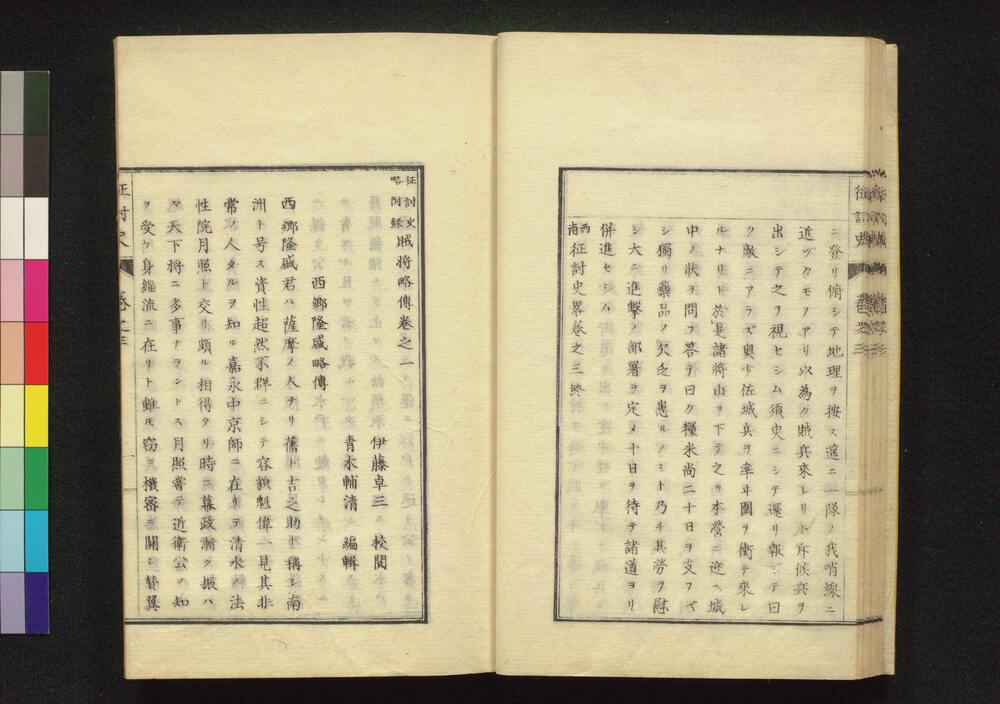 ニ登リ俯シテ地理ヲ按ス遥ニ一隊ノ我哨線ニ
近ヅクモノアリ以為ク賊兵來レリト斥候兵ヲ
出シテ之ヲ視セシム須臾ニシテ還リ報ジテ曰
ク敵ニアラズ奥少佐城兵ヲ率ヰ圍ヲ衝テ來レ
ルナリト於是諸將山ヲ下テ之ヲ本營ニ迎ヘ城
中ノ狀ヲ問フ答テ曰ク糧米尚二十日ヲ支フベ
シ獨リ藥品ノ欠乏ヲ患ルノミト乃チ其勞ヲ慰
シ大ニ進擊ノ部署ヲ定メ十日ヲ待テ諸道ヨリ
併進セシム
西南征討史畧卷之三終
征討史略附錄賊將略傳卷之一
伊藤卓三 校閱
青木輔清 編輯
西郷隆盛略傳
西郷隆盛君ハ薩摩ノ人ナリ舊ト吉之助ト稱シ南
洲ト号ス資性超然不群ニシテ容貌魁偉一見其非
常ノ人タルヲ知ル嘉永中京師ニ在リテ清水ノ法
性院月照ト交リ頗ル相得タリ時ニ幕政漸ク振ハ
ズ天下將ニ多事ナラントス月照嘗テ近衛公ノ知
ヲ受ケ身緇流ニ在リト雖モ窃ニ機密ニ關シ替翼